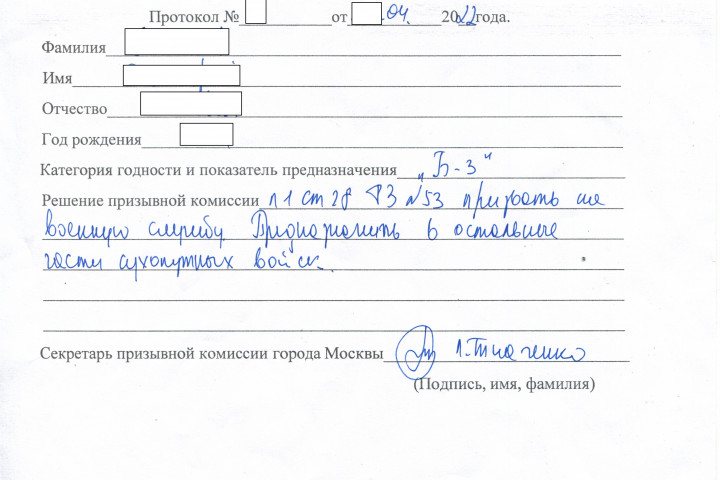 Протокол № от .04. 2022 года.
Фамилия
Имя
Отчество
Год рождения
Категория годности и показатель предназначения „Б-3"
Решение призывной комиссии п 1 ст 28 ФЗ №53 призвать на
военную службу. Предназначить в остальные
части сухопутных войск.
Секретарь призывной комиссии города Москвы Л.Ткаченко
(Подпись, имя, фамилия)